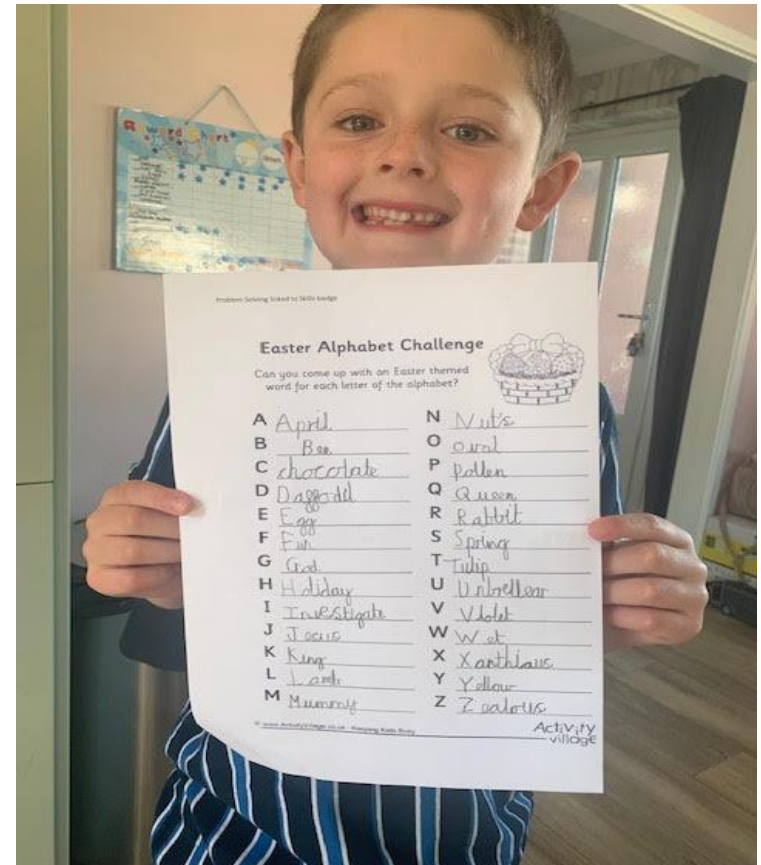 Reward Chart
Problem Solving linked to Skills badge
Easter Alphabet Challenge
Can you come up with an Easter themed
word for each letter of the alphabet?
A April
B Bee
C chocolate
D Daffodil
E Egg
F Fun
G God
H Holiday
I Investigate
J Jesus
K King
L Lamb
M Mummy
N Nut's
O oval
P pollen
Q Queen
R Rabbit
S Spring
T Tulip
U Unbrellar
V Violet
W Wet
X Xanthiaus
Y Yellow
Z Zealous
© www.ActivityVillage.co.uk - Keeping Kids Busy
Activity
village